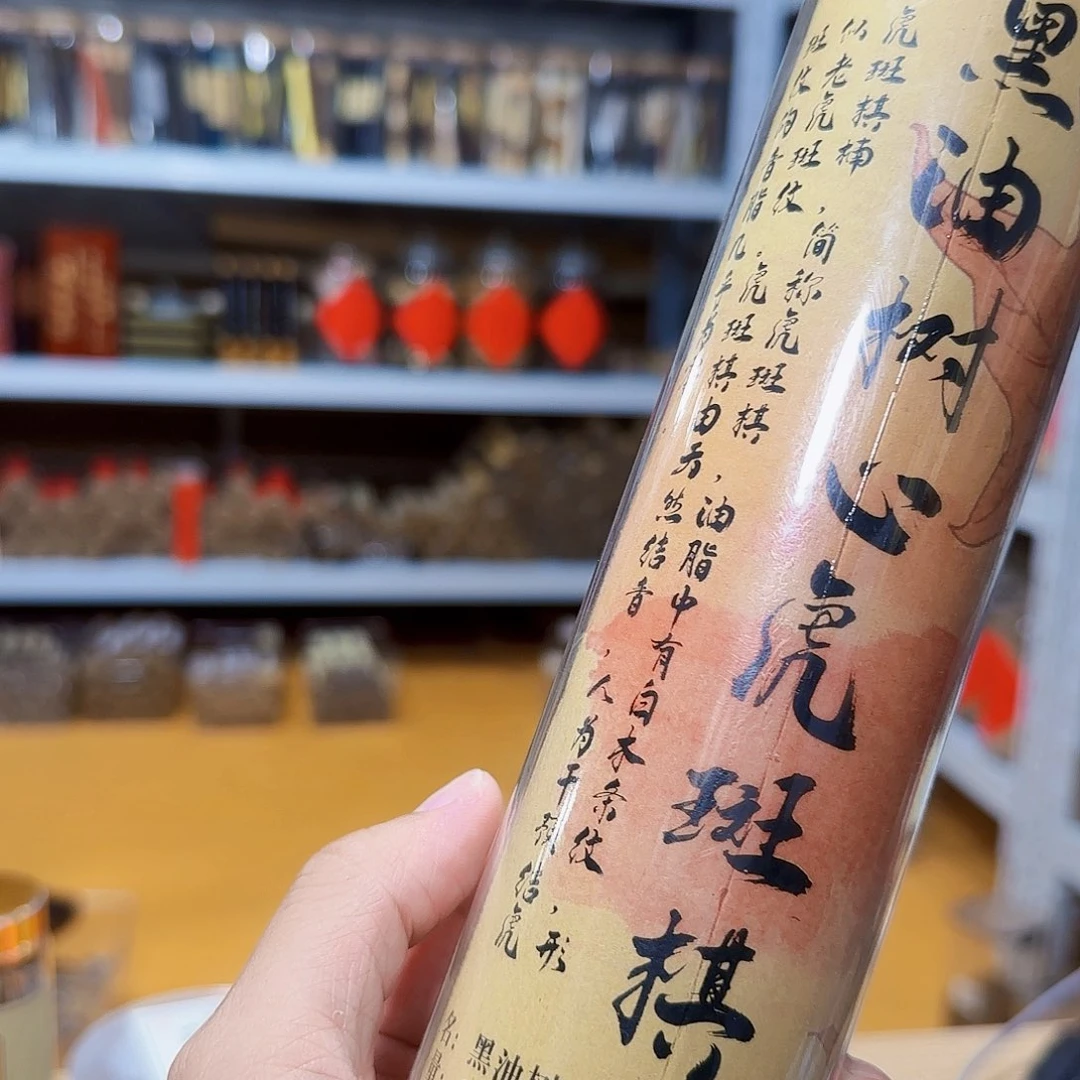 黑油树心虎斑棋
虎斑棋楠，简称虎斑棋，油脂中有白木条纹，形
似老虎斑纹，虎斑棋由天然结香，人为干预结虎
斑纹的香脂几乎为
名：黑油树
量：